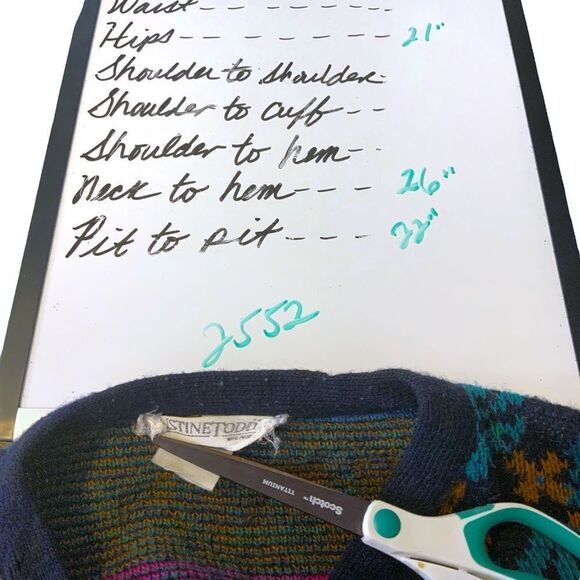 Waist - - - - - - - -
Hips - - - - - - - 21"
Shoulder to shoulder -
Shoulder to cuff - -
Shoulder to hem - -
Neck to hem - - - - 26"
Pit to pit - - - - 22"
2552
STINE TODD
Scotch™
TITANIUM